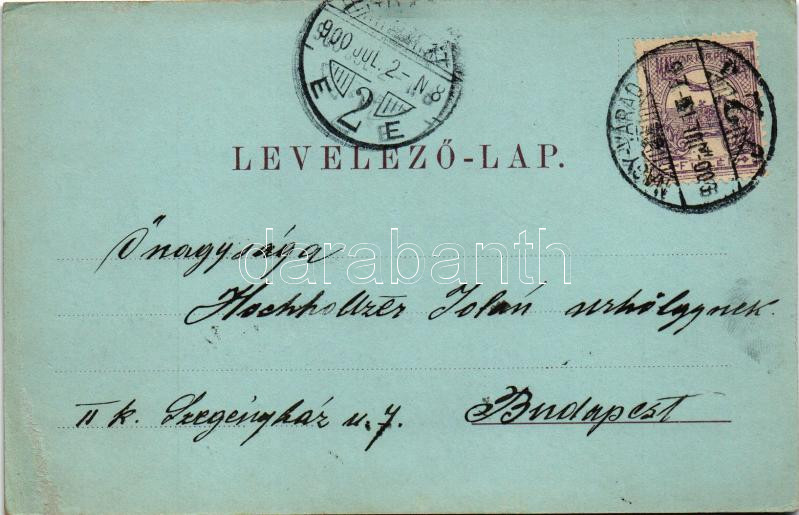 900 JUL. 2 - N 8
2
NAGY-VÁRAD
LEVELEZŐ-LAP.
Őnagysága
Hochholtzer Jolán urhölgynek.
II k. Szegényház u. 7. Budapest
darabanth